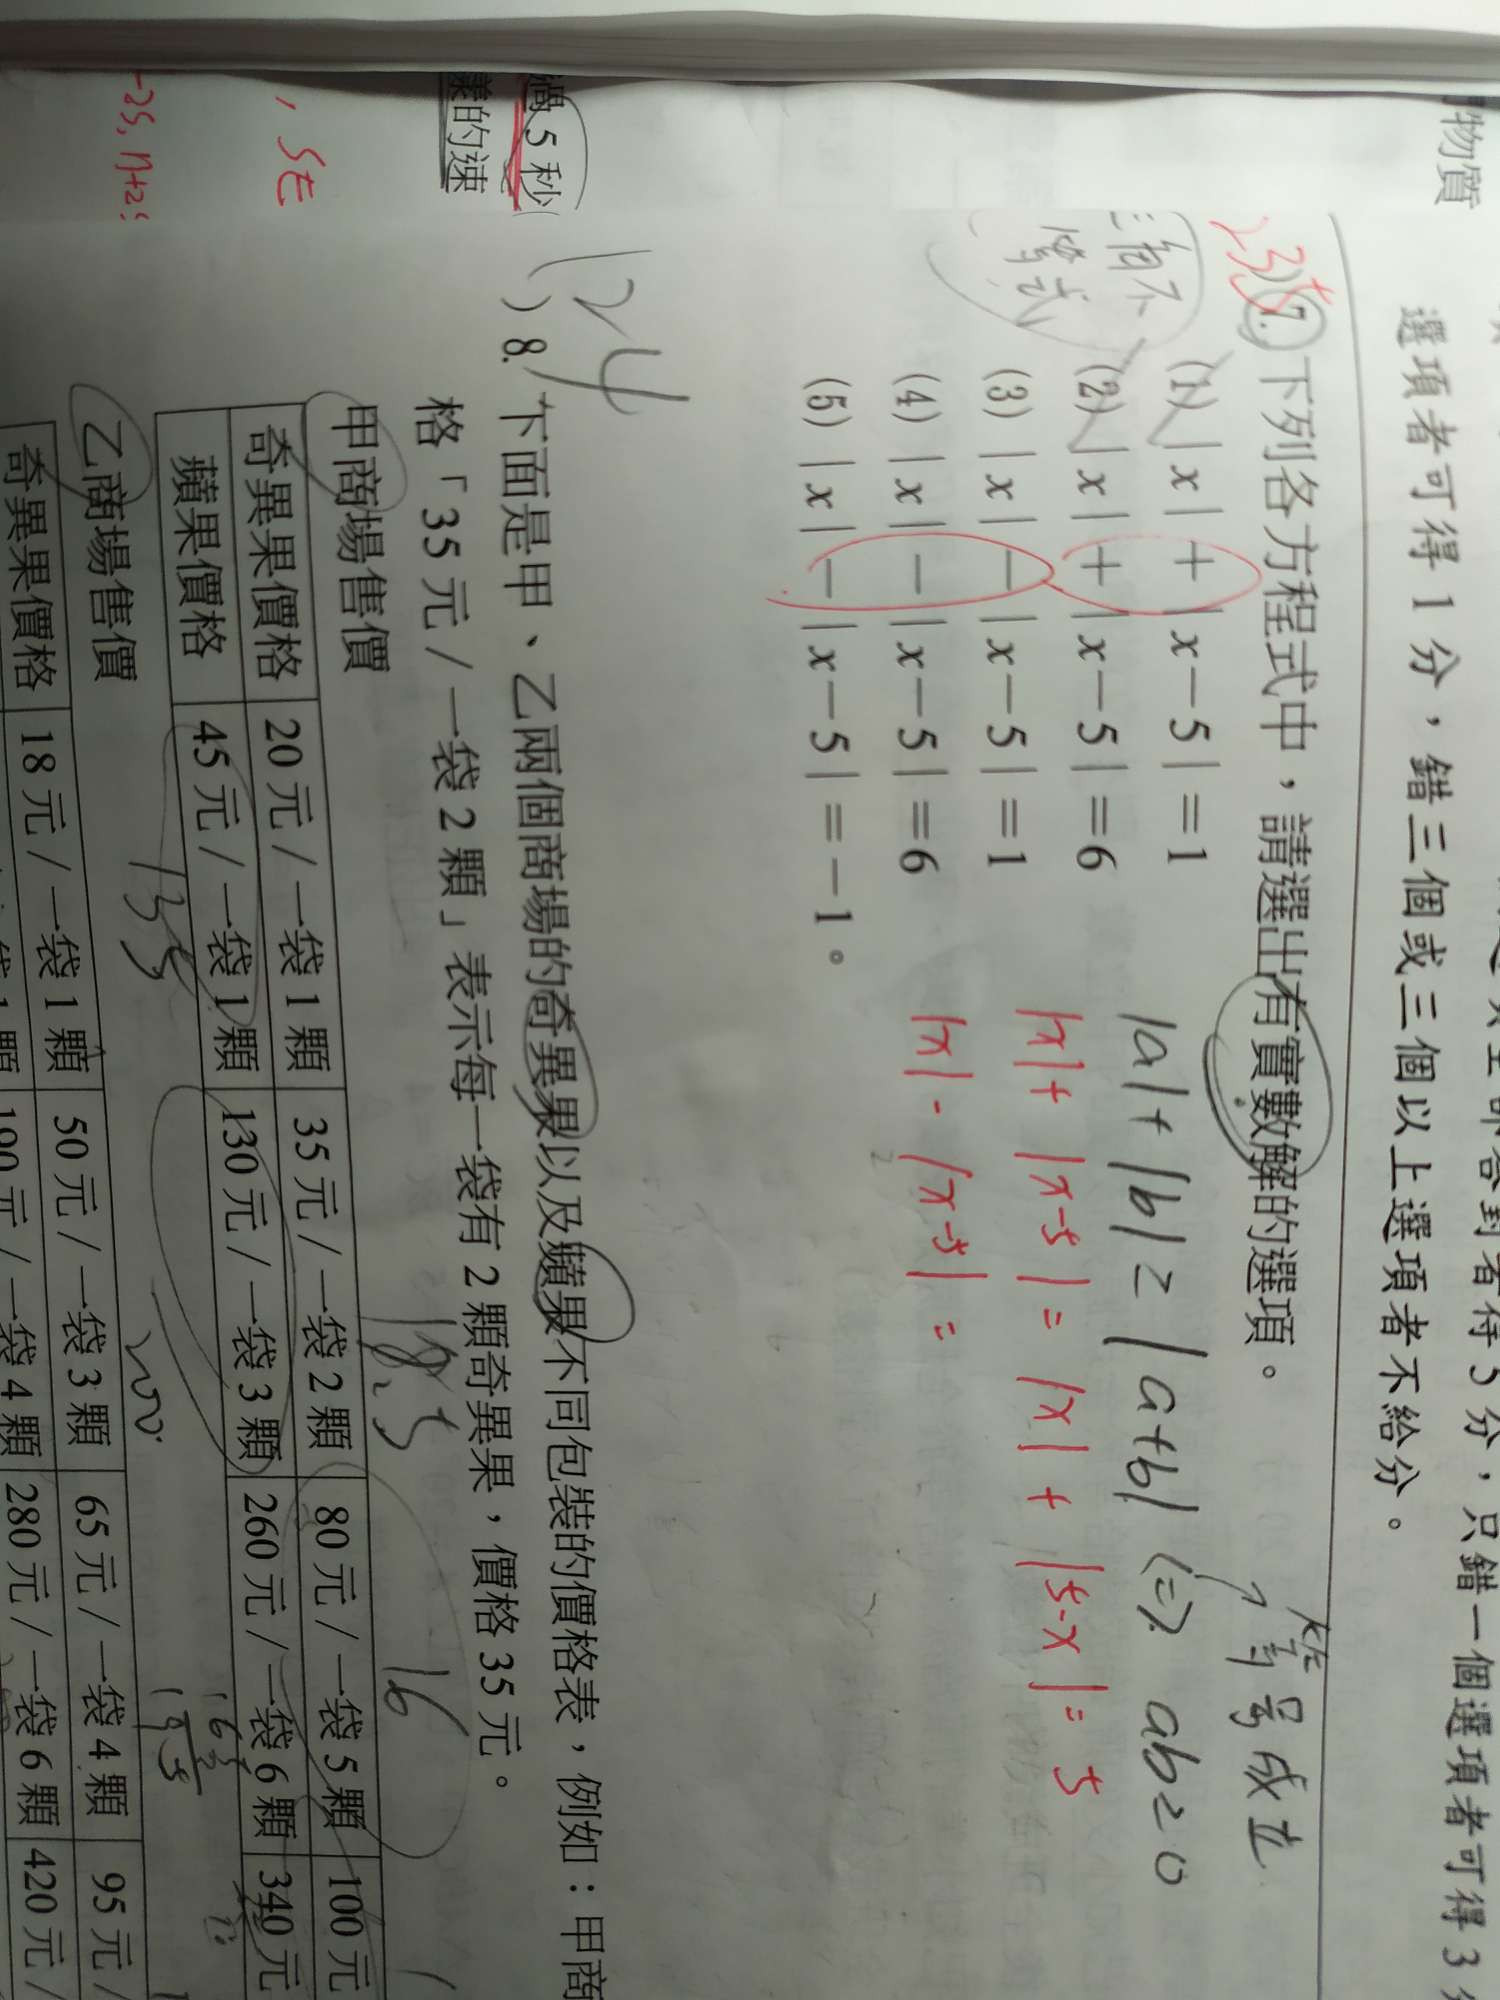 物質
過5秒
樣的速
, 5t
-25, n+25
選項者可得 1 分，錯三個或三個以上選項者不給分。
235
7. 下列各方程式中，請選出有實數解的選項。
(1) |x|+|x－5|＝1
(2) |x|+|x－5|＝6
(3) |x|－|x－5|＝1
(4) |x|－|x－5|＝6
(5) |x|－|x－5|＝－1。
三角不
等式
等號成立
|a|+|b|≥|a+b| (⇒ ab≥0
|x|+|x-5|=|x|+|5-x|=5
|x|-|x-5|=
124
) 8. 下面是甲、乙兩個商場的奇異果以及蘋果不同包裝的價格表，例如：甲商
格「35 元／一袋 2 顆」表示每一袋有 2 顆奇異果，價格 35 元。
甲商場售價
18.5
16
奇異果價格 20 元／一袋 1 顆 35 元／一袋 2 顆 80 元／一袋 5 顆 100 元
蘋果價格 45 元／一袋 1 顆 130 元／一袋 3 顆 260 元／一袋 6 顆 340 元
135
200
乙商場售價
奇異果價格 18 元／一袋 1 顆 50 元／一袋 3 顆 65 元／一袋 4 顆 95 元／
190 元／一袋 4 顆 280 元／一袋 6 顆 420 元／